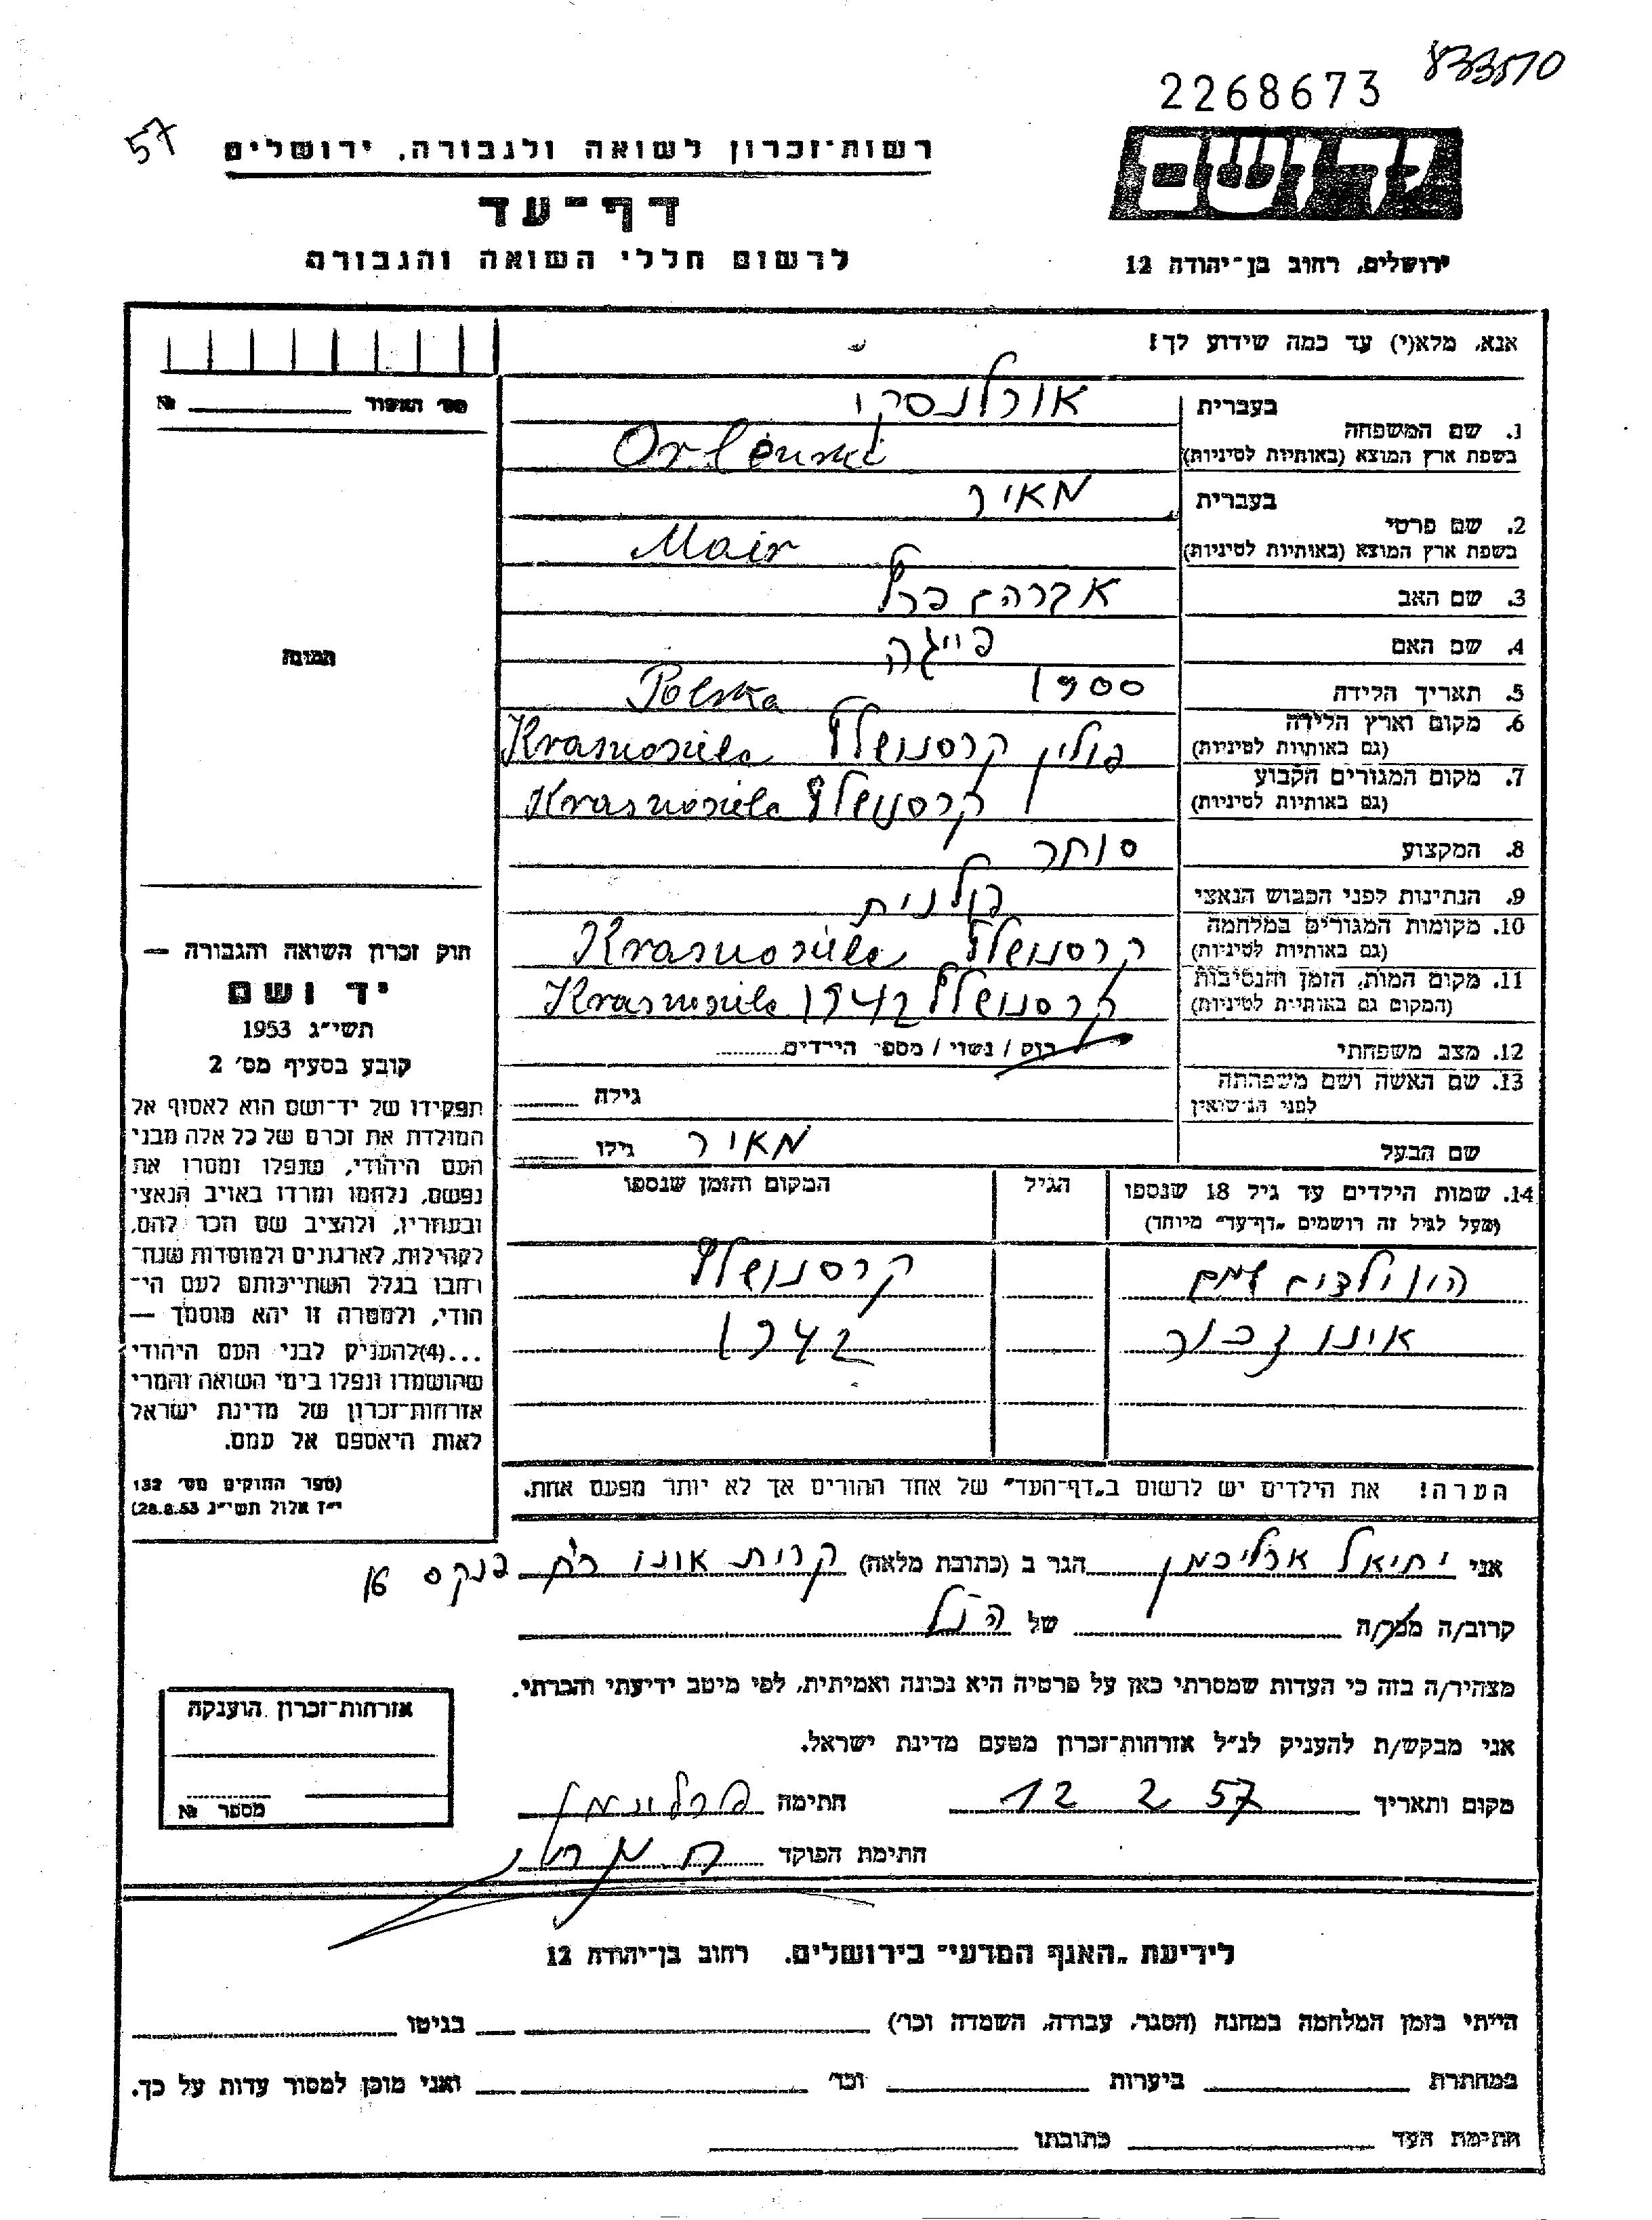 833570
2268673
57
רשות־זכרון לשואה ולגבורה, ירושלים
יד ושם
דף־עד
לרשום חללי השואה והגבורה
ירושלים, רחוב בן־יהודה 12
אנא, מלא(י) עד כמה שידוע לך!
מס׳ האשור №
בעברית אורלנסקי
1. שם המשפחה
בשפת ארץ המוצא (באותיות לטיניות) Orlenski
בעברית מאיר
2. שם פרטי
בשפת ארץ המוצא (באותיות לטיניות) Mair
3. שם האב אברהם
4. שם האם פייגה
תמונה
5. תאריך הלידה 1900
6. מקום וארץ הלידה Polska
(גם באותיות לטיניות) פולין קרסנושלץ Krasnosilc
7. מקום המגורים הקבוע
(גם באותיות לטיניות) קרסנושלץ Krasnosilc
8. המקצוע סוחר
9. הנתינות לפני הכבוש הנאצי פולנית
10. מקומות המגורים במלחמה
(גם באותיות לטיניות) קרסנושלץ Krasnosilc
11. מקום המות, הזמן והנסיבות
(המקום גם באותיות לטיניות) קרסנושלץ 1942 Krasnosilc
12. מצב משפחתי רוק / נשוי / מספר הילדים
13. שם האשה ושם משפחתה גילה
לפני הנישואין
שם הבעל מאיר גילו
14. שמות הילדים עד גיל 18 שנספו הגיל המקום והזמן שנספו
(מעל לגיל זה רושמים „דף־עד״ מיוחד)
היו ילדים קרסנושלץ
אינו זכור 1942
הערה! את הילדים יש לרשום ב„דף־העד״ של אחד ההורים אך לא יותר מפעם אחת.
חוק זכרון השואה והגבורה —
יד ושם
תשי״ג 1953
קובע בסעיף מס׳ 2
תפקידו של יד־ושם הוא לאסוף אל
המולדת את זכרם של כל אלה מבני
העם היהודי, שנפלו ומסרו את
נפשם, נלחמו ומרדו באויב הנאצי
ובעוזריו, ולהציב שם וזכר להם,
לקהילות, לארגונים ולמוסדות שנח־
רבו בגלל השתייכותם לעם הי־
הודי, ולמטרה זו יהא מוסמך —
...(4)להעניק לבני העם היהודי
שהושמדו ונפלו בימי השואה והמרי
אזרחות־זכרון של מדינת ישראל
לאות היאספם אל עמם.
(ספר החוקים מס׳ 132
י״ז אלול תשי״ג 28.8.53)
אני יחיאל הגר ב (כתובת מלאה) קרית אונו רח׳ פנקס
קרוב/ה מכר/ה של הנ״ל
מצהיר/ה בזה כי העדות שמסרתי כאן על פרטיה היא נכונה ואמיתית, לפי מיטב ידיעתי והכרתי.
אני מבקש/ת להעניק לנ״ל אזרחות־זכרון מטעם מדינת ישראל.
מקום ותאריך 12 2 57 חתימה
חתימת הפוקד
אזרחות־זכרון הוענקה
מספר №
לידיעת „האגף המדעי״ בירושלים. רחוב בן־יהודה 12
הייתי בזמן המלחמה במחנה (הסגר, עבודה, השמדה וכו׳) בגיטו
במחתרת ביערות וכו׳ ואני מוכן למסור עדות על כך.
חתימת העד כתובתו